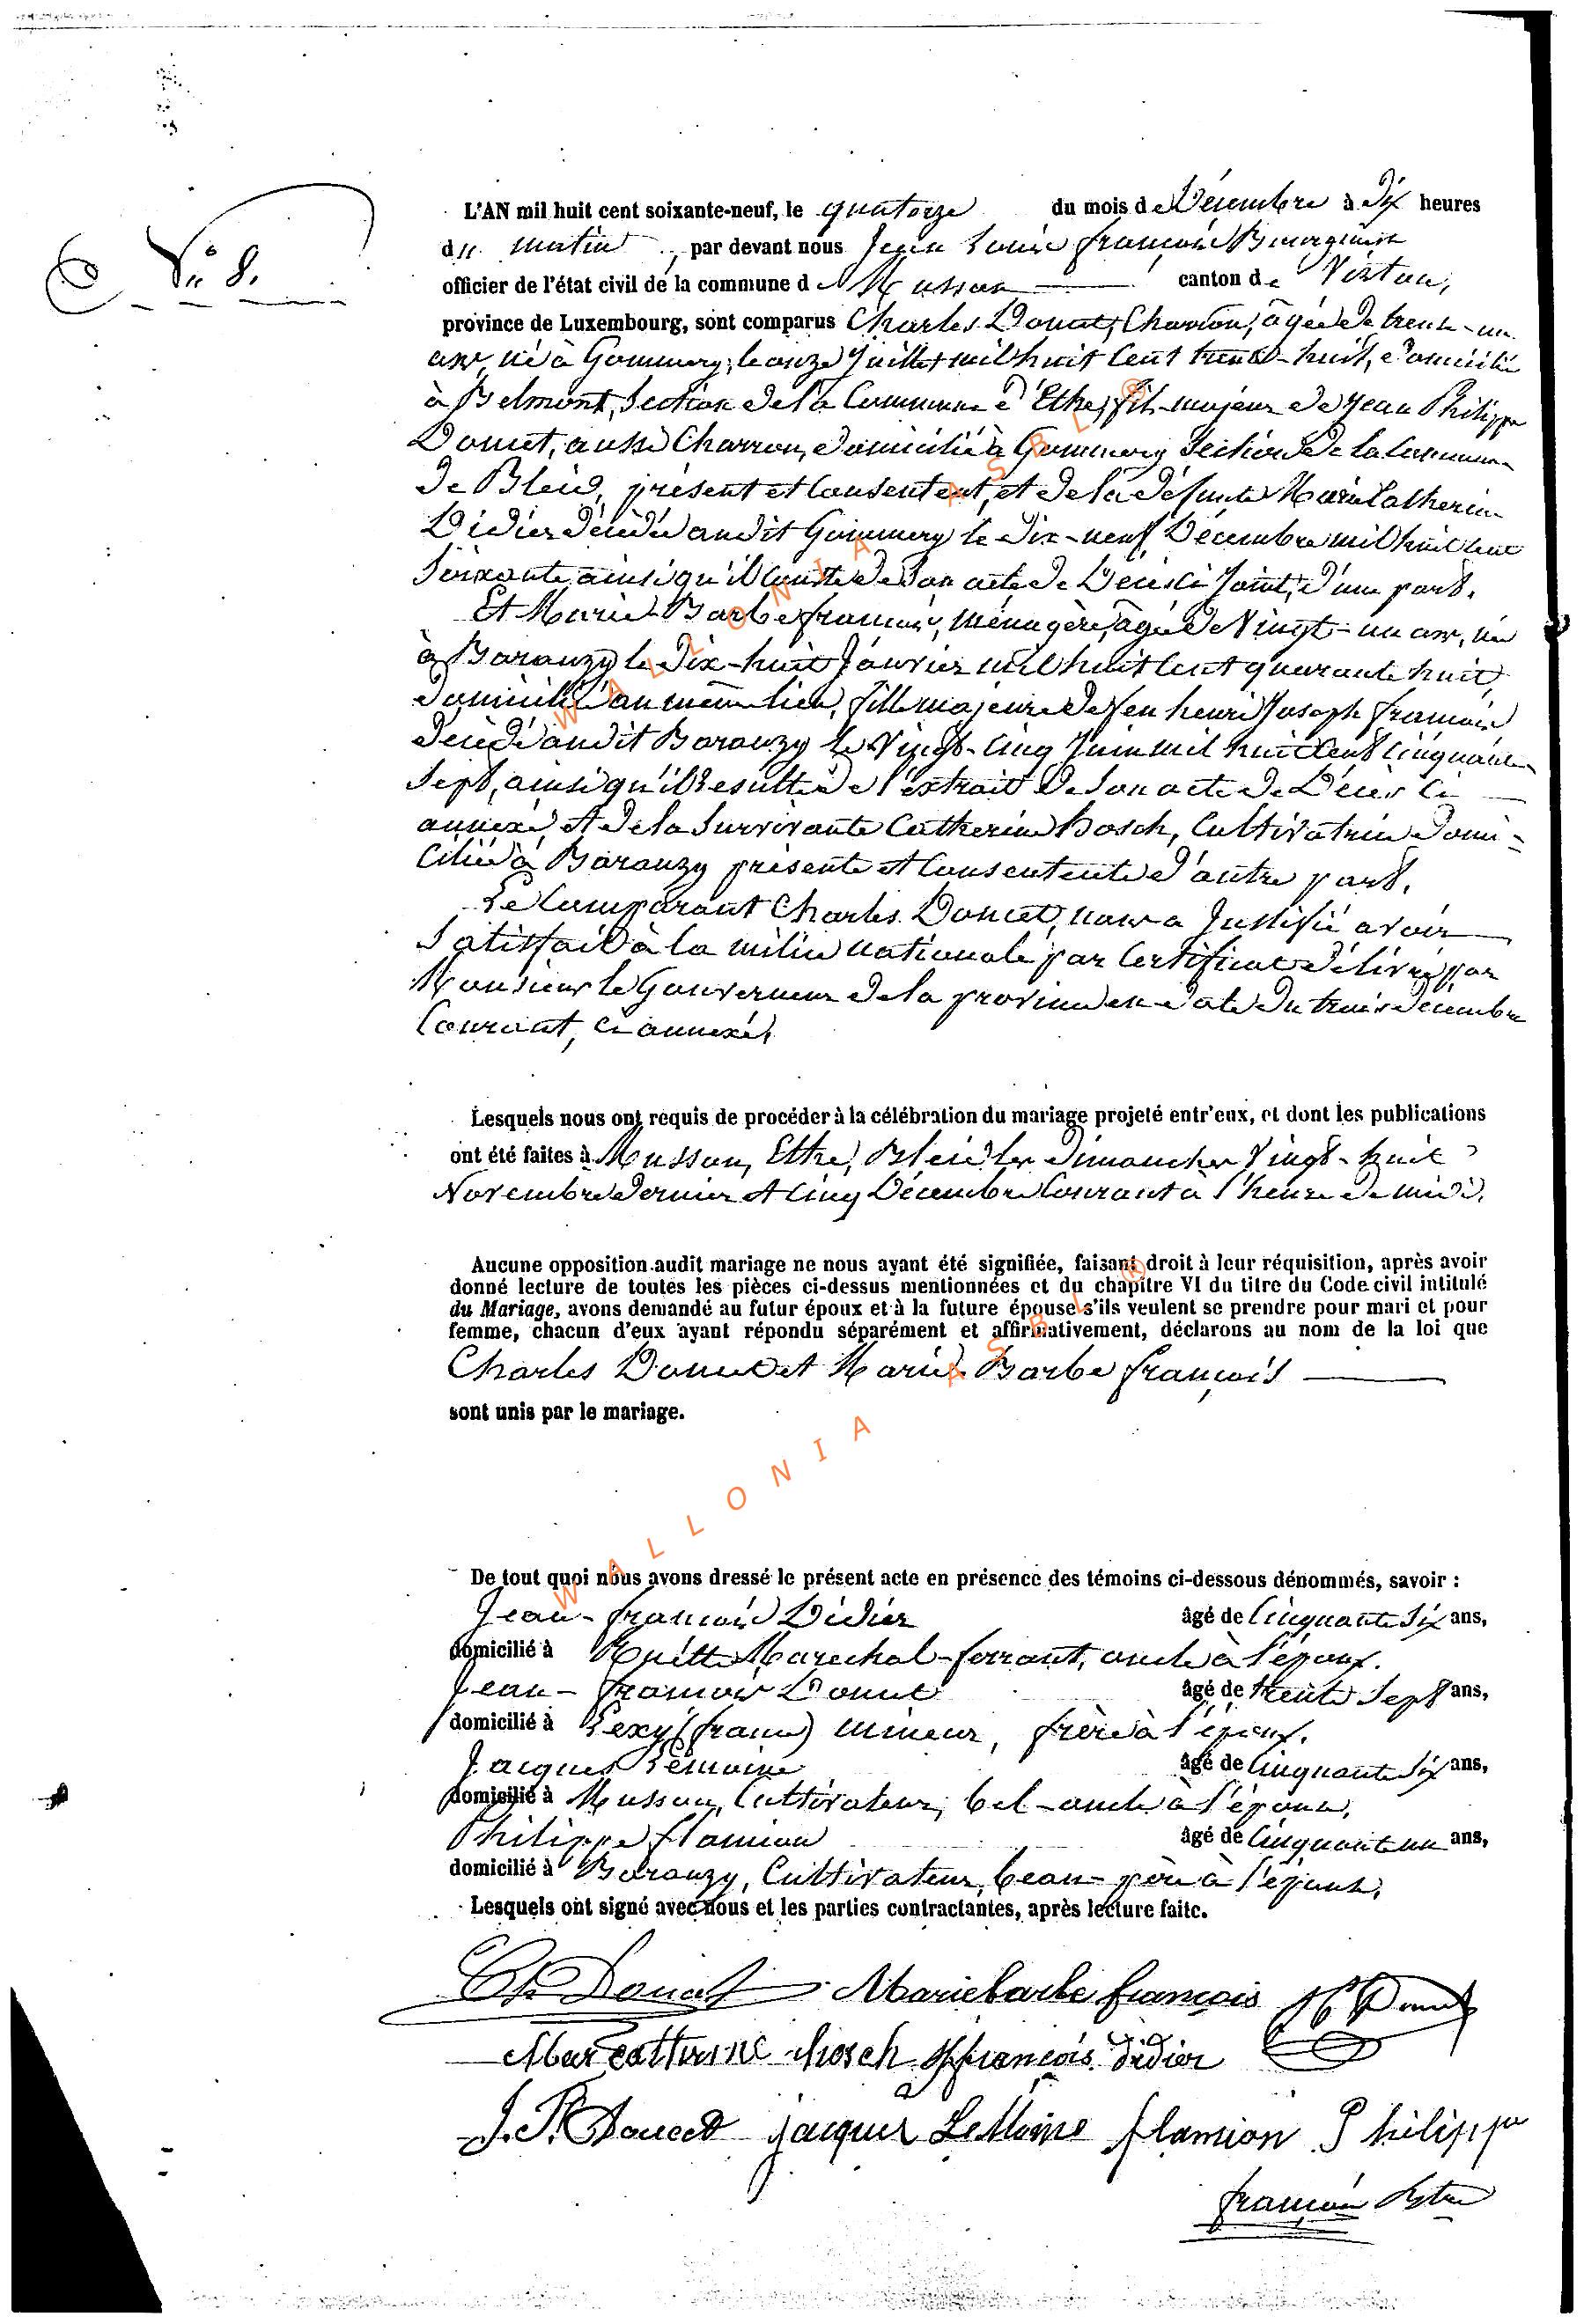 N° 8.
L'AN mil huit cent soixante-neuf, le quatorze du mois de Décembre à Dix heures
du matin, par devant nous Jean Louis françois Bourguignon
officier de l'état civil de la commune de Musson canton de Virton,
province de Luxembourg, sont comparus Charles Doucet, Charron, âgé de trente-un
ans, né à Gommery, le onze Juillet mil huit cent trente-huit, domicilié
à Belmont, Section de la Commune d'Ethe, fils majeur de Jean Philippe
Doucet, aussi Charron, domicilié à Gommery Section de la Commune
de Bleid, présent et Consentent, et de la défunte Marie Catherine
Didier décédée audit Gommery le Dix-neuf Décembre mil huit cent
Soixante ainsi qu'il Conste de Son acte de Décès ci Joint, d'une part.
Et Marie Barbe françois, ménagère, âgée de Vingt-un ans, née
à Baranzy le Dix-huit Janvier mil huit Cent quarante huit,
domiciliée au même lieu, fille majeure de feu henri Joseph françois
décédé audit Baranzy le Vingt-Cinq Juin mil huit Cent Cinquante
Sept, ainsi qu'il Résulte de l'extrait de Son acte de Décès Ci
annexé et de la Survivante Catherine hosch, Cultivatrice domi=
ciliée à Baranzy présente et Consentente d'autre part.
Le Comparant Charles Doucet, nous a Justifié avoir
Satisfait à la milice nationale par Certificat délivré par
Monsieur le Gouverneur de la province en date du trois décembre
Courant, Ci annexé,
Lesquels nous ont requis de procéder à la célébration du mariage projeté entr'eux, et dont les publications
ont été faites à Musson, Ethe, Bleid les Dimanches Vingt-huit
Novembre dernier et Cinq Décembre Courant à l'heure de midi.
Aucune opposition audit mariage ne nous ayant été signifiée, faisant droit à leur réquisition, après avoir
donné lecture de toutes les pièces ci-dessus mentionnées et du chapitre VI du titre du Code civil intitulé
du Mariage, avons demandé au futur époux et à la future épouse s'ils veulent se prendre pour mari et pour
femme, chacun d'eux ayant répondu séparément et affirmativement, déclarons au nom de la loi que
Charles Doucet et Marie Barbe françois
sont unis par le mariage.
De tout quoi nous avons dressé le présent acte en présence des témoins ci-dessous dénommés, savoir :
Jean-françois Didier âgé de Cinquante Six ans,
domicilié à Ruette Marechal-ferrant, oncle à l'époux.
Jean-françois Doucet âgé de trente Sept ans,
domicilié à Lexy (france) mineur, frère à l'époux.
Jacques Lémoine âgé de Cinquante Six ans,
domicilié à Musson, Cultivateur, bel-oncle à l'épouse,
Philippe flamion âgé de Cinquante un ans,
domicilié à Baranzy, Cultivateur, beau-père à l'épouse,
Lesquels ont signé avec nous et les parties contractantes, après lecture faite.
Ch Doucet Marie barbe françois
Marie catherine hosch françois didier
J. F. Doucet jacques LeMoine flamion Philippe
françois
WALLONIA ASBL ®
WALLONIA ASBL ®